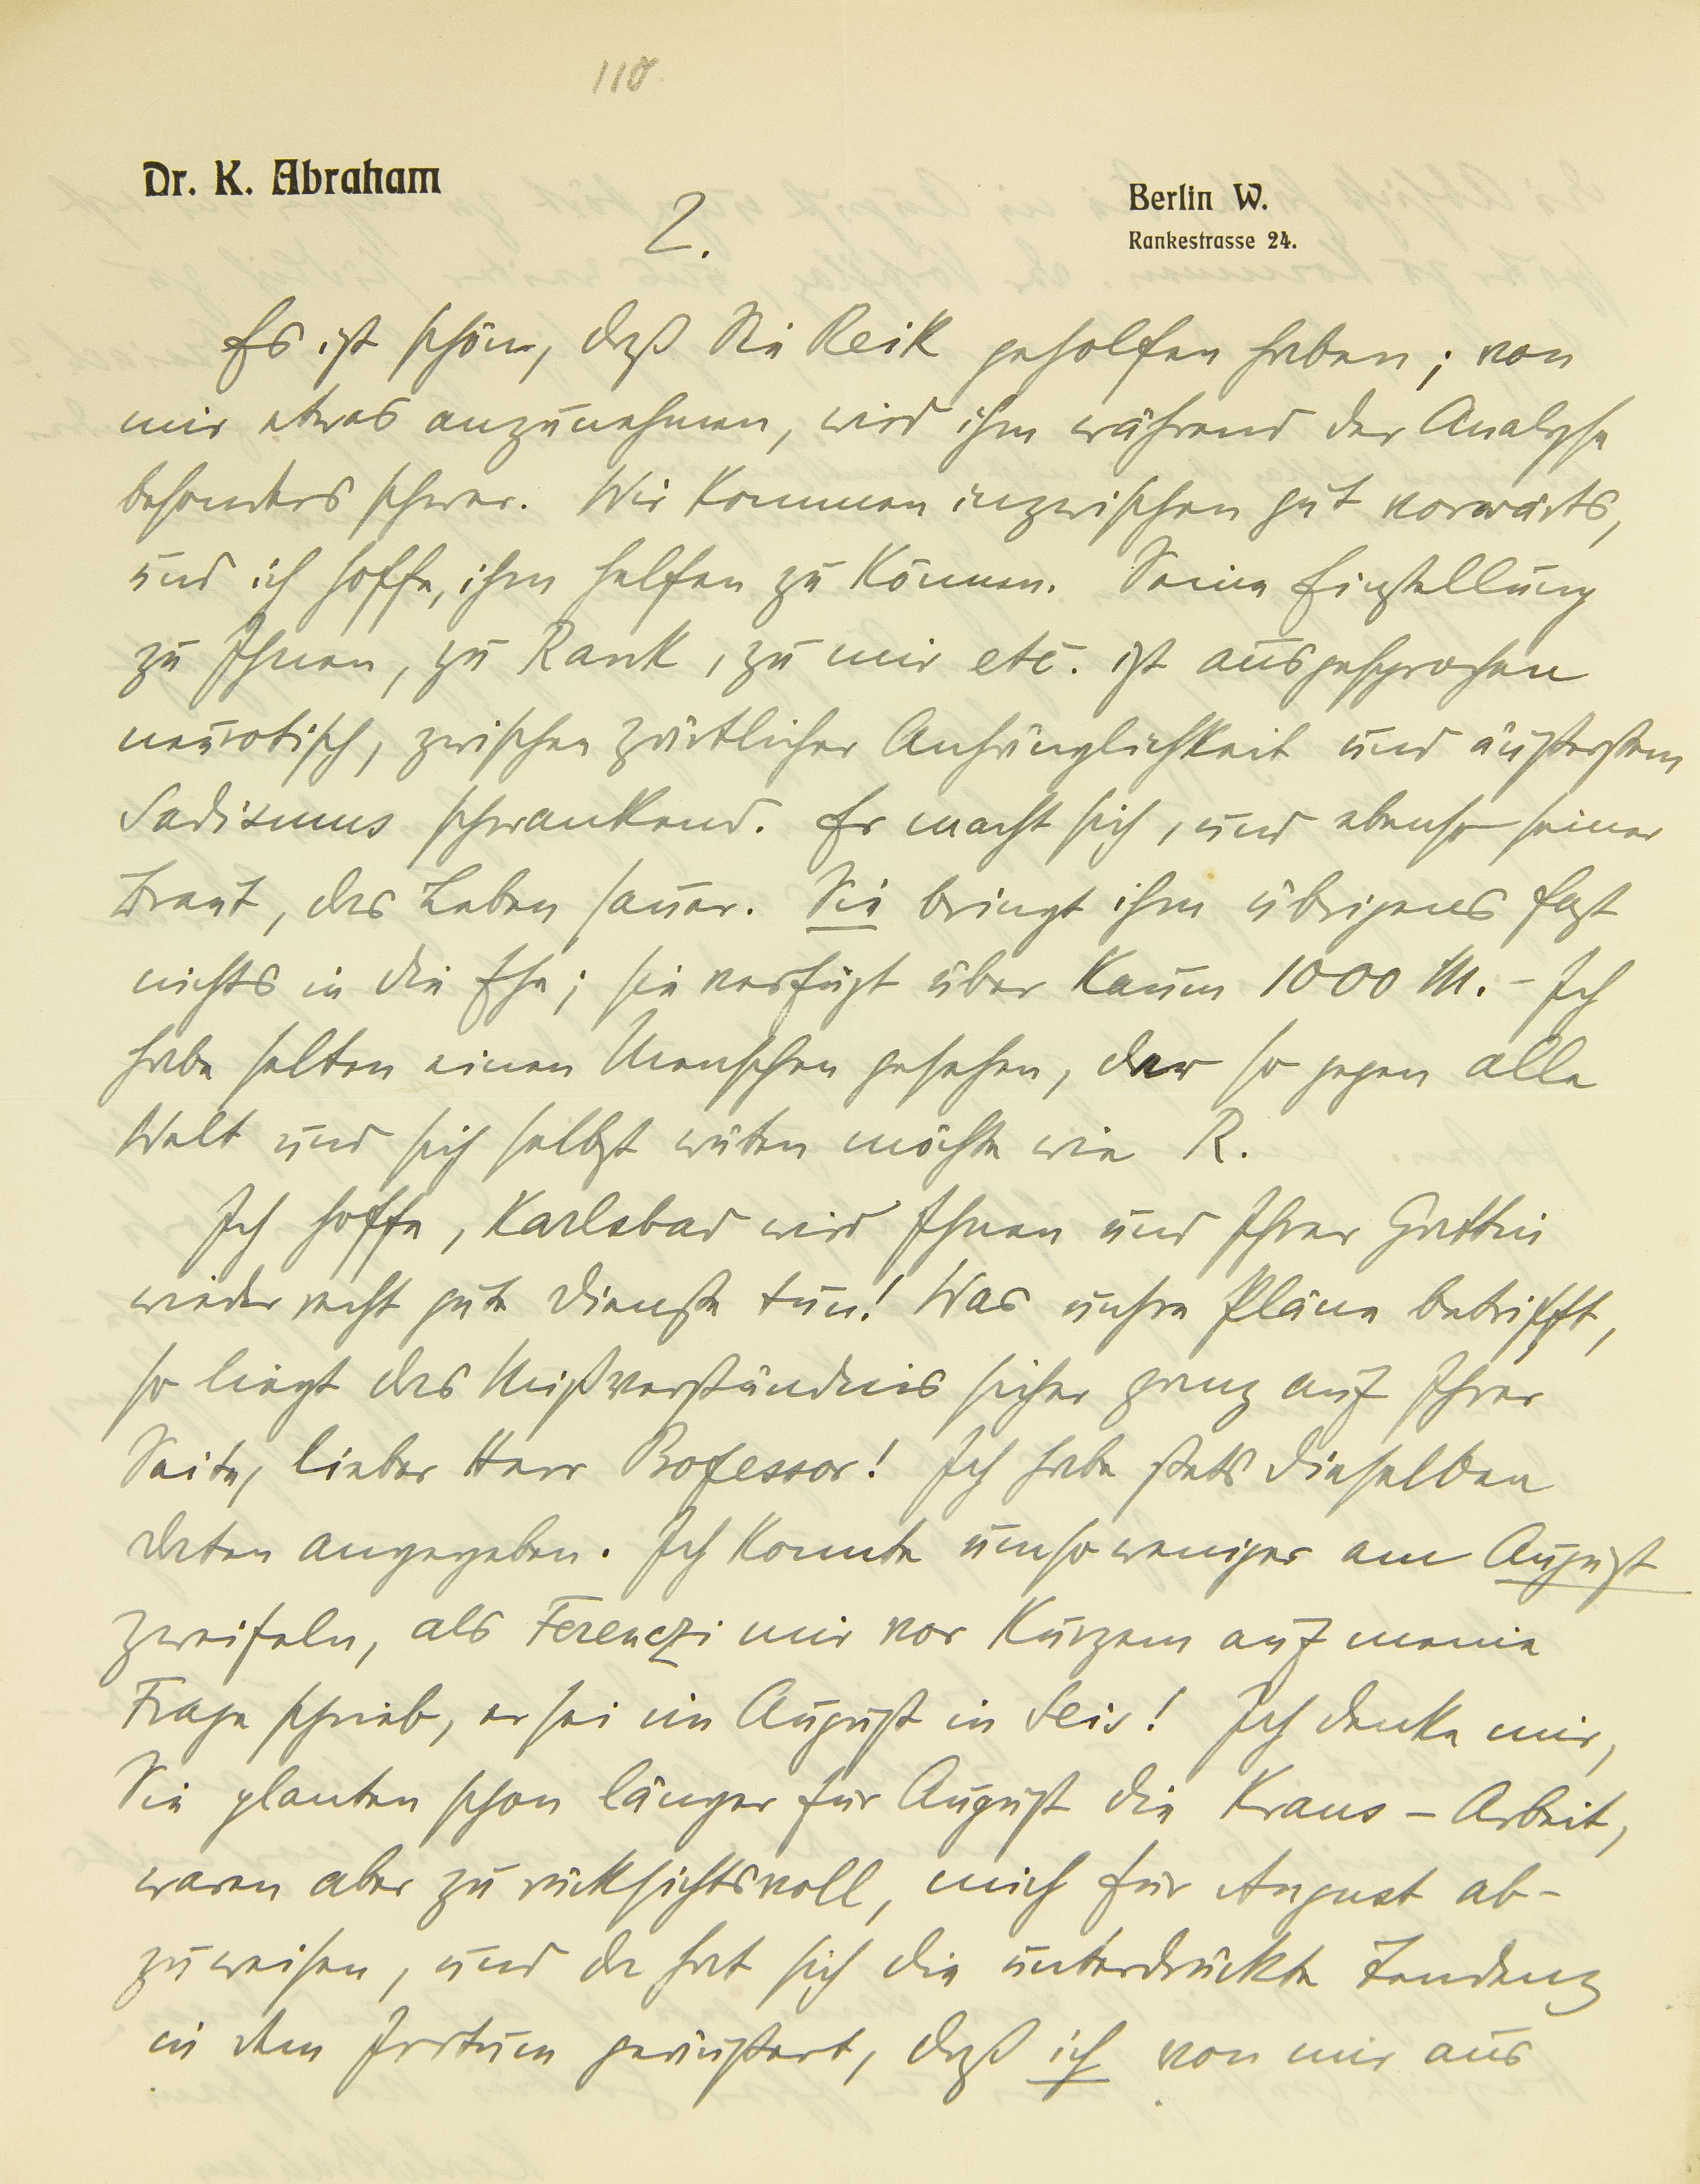 110
Dr. K. Abraham
Berlin W.
Rankestrasse 24.
2.
Es ist schön, daß Sie Reik geholfen haben; von
mir etwas anzunehmen, wird ihm während der Analyse
besonders schwer. Wir kommen inzwischen gut vorwärts,
und ich hoffe, ihm helfen zu können. Seine Einstellung
zu Ihnen, zu Rank, zu mir etc. ist ausgesprochen
neurotisch, zwischen zärtlicher Anhänglichkeit und äußerstem
Sadismus schwankend. Er macht sich, und ebenso seiner
Braut, das Leben sauer. Sie bringt ihm übrigens fast
nichts in die Ehe; sie verfügt über kaum 1000 M. – Ich
habe selten einen Menschen gesehen, der so gegen alle
Welt und sich selbst wüten möchte wie R.
Ich hoffe, Karlsbad wird Ihnen und Ihrer Gattin
wieder recht gute Dienste tun! Was unsre Pläne betrifft,
so liegt das Mißverständnis sicher ganz auf Ihrer
Seite, lieber Herr Professor! Ich habe stets dieselben
Daten angegeben. Ich konnte umso weniger am August
zweifeln, als Ferenczi mir vor Kurzem auf meine
Frage schrieb, er sei im August in Seis! Ich denke mir,
Sie planten schon länger für August die Kraus-Arbeit,
waren aber zu rücksichtsvoll, mich für August ab-
zuweisen, und da hat sich die unterdrückte Tendenz
in dem Irrtum geäußert, daß ich von mir aus